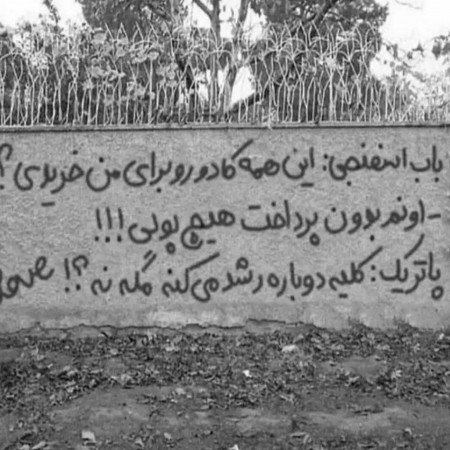 باب اسفنجی: این همه کادو رو برای من خریدی؟!
- اونم بدون پرداخت هیچ پولی!!!
پاتریک: کلیه دوباره رشد می کنه مگه نه؟!